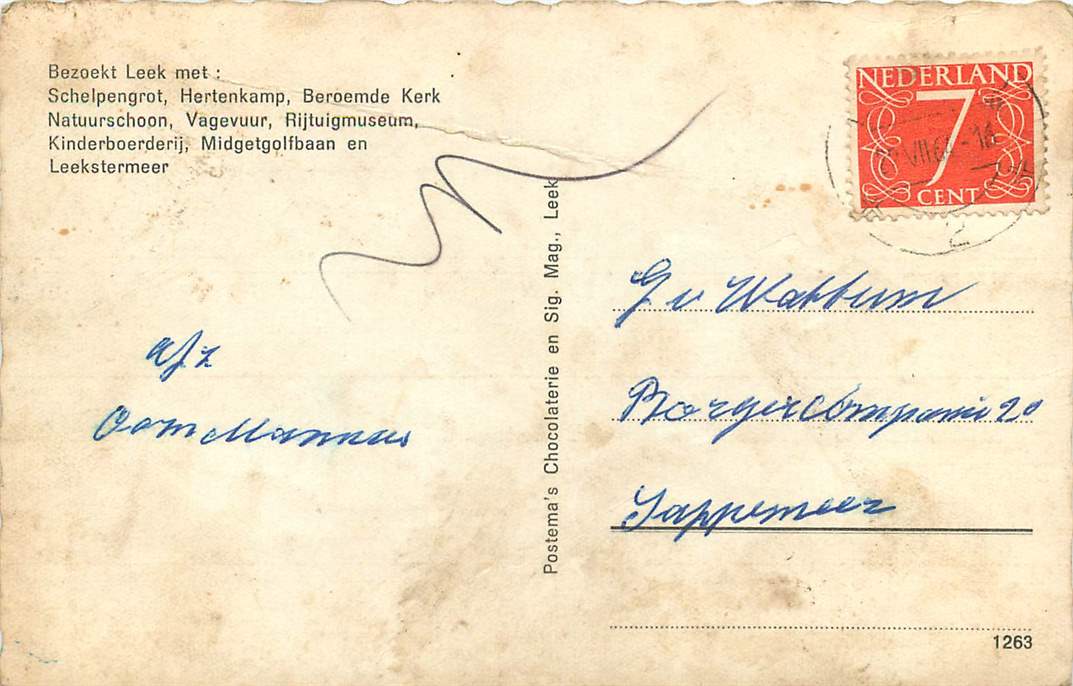 Bezoekt Leek met :
Schelpengrot, Hertenkamp, Beroemde Kerk
Natuurschoon, Vagevuur, Rijtuigmuseum,
Kinderboerderij, Midgetgolfbaan en
Leekstermeer
NEDERLAND
7
CENT
Postema's Chocolaterie en Sig. Mag., Leek
afz
Oom Mannus
G v
Borgercompanie 20
Sappemeer
1263